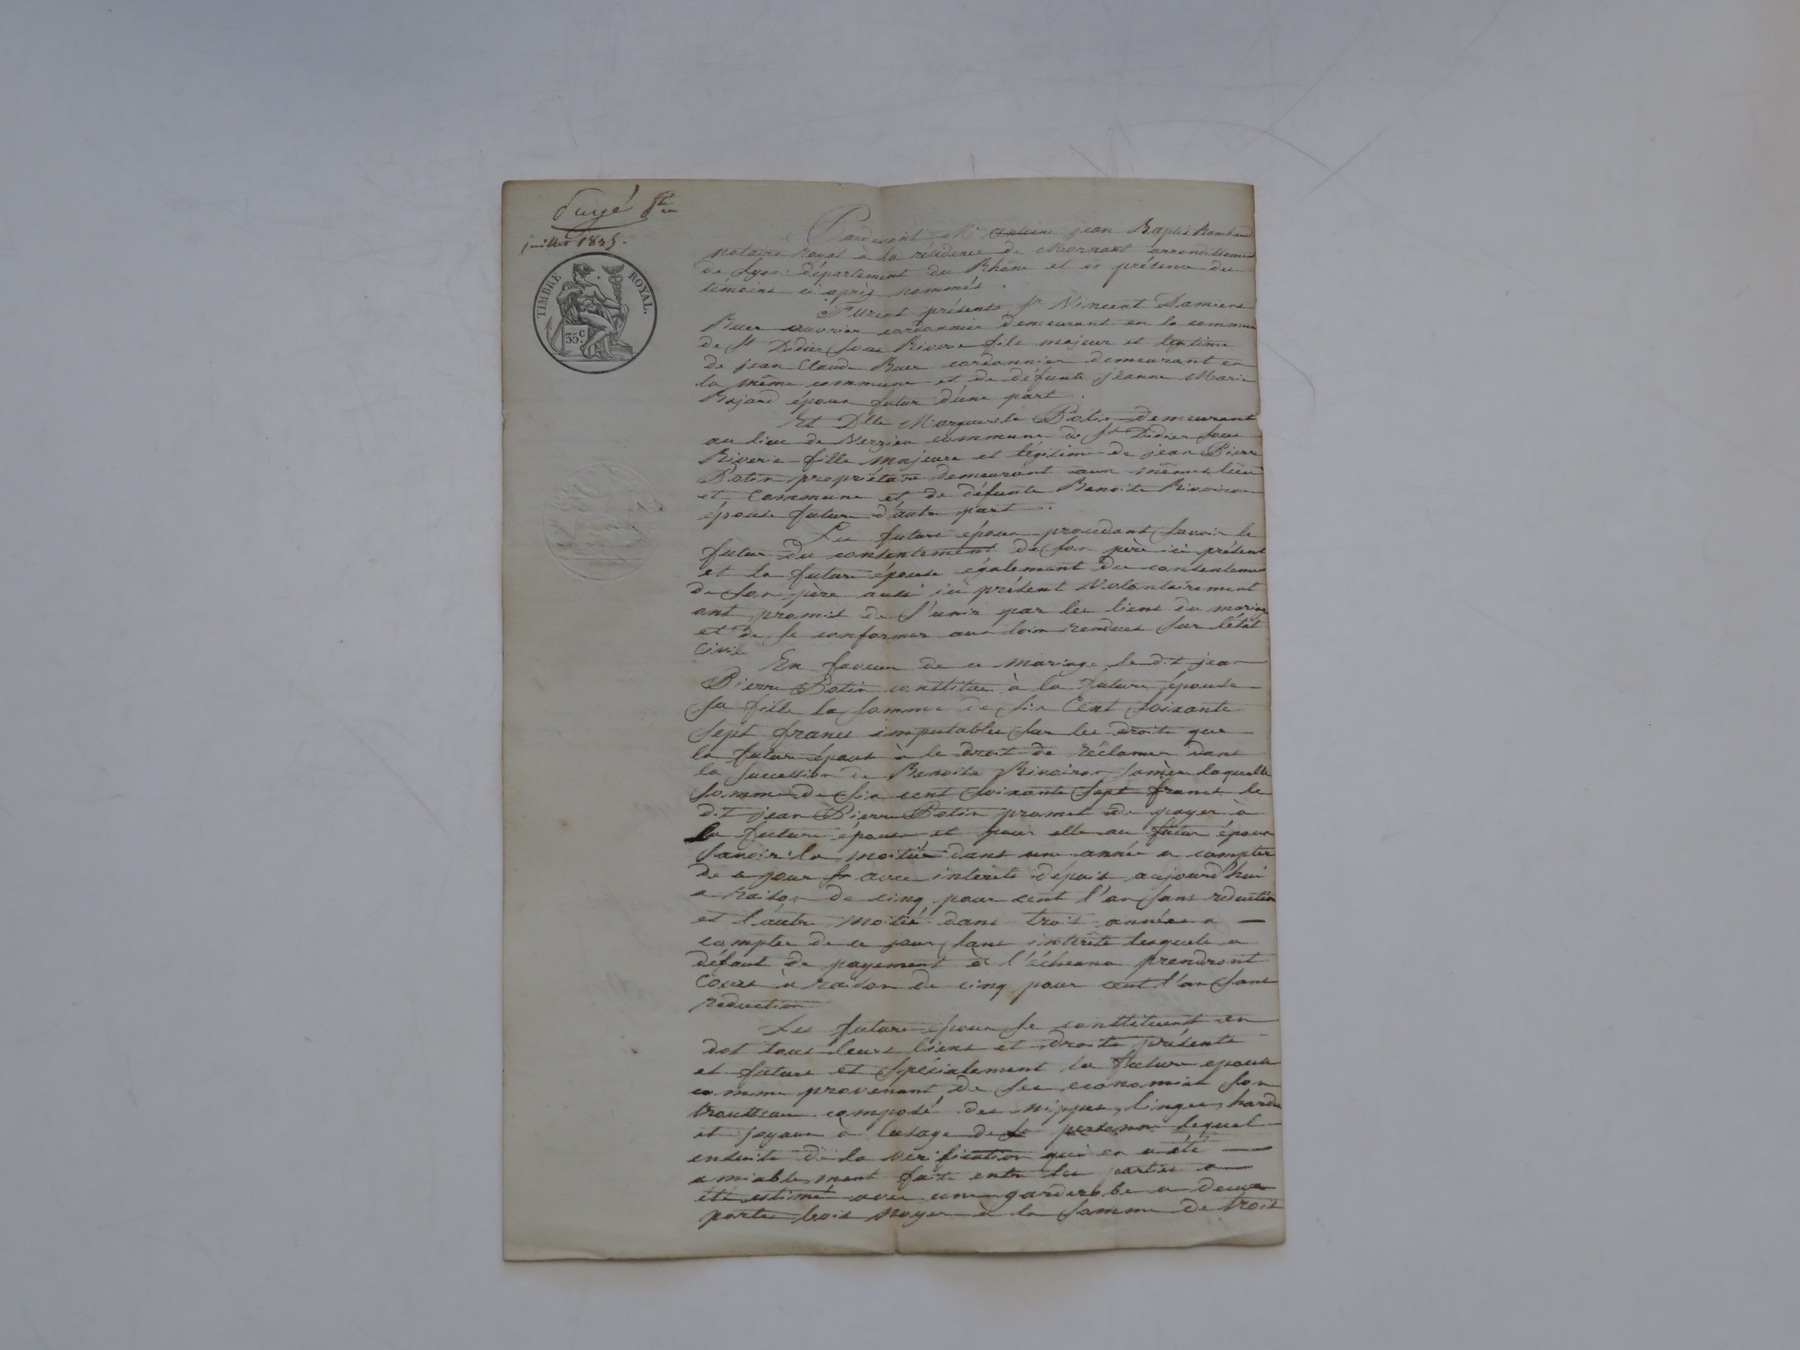 payé
juillet 1835.
TIMBRE ROYAL.
35 c.
Pardevant Me Antoine jean Baptte
notaire royal à la résidence de Mornant arrondissement
de Lyon département du Rhône et en présence des
témoins ci après nommés.
Furent présents sr Vincent Damiens
ouvrier cordonnier demeurant en la commune
de St Didier sous Riverie fils majeur et légitime
de jean Claude cordonnier demeurant en
la même commune et de défunte jeanne Marie
époux futur d'une part.
Et Dlle Marguerite Potin demeurant
au lieu de commune de St Didier sous
Riverie fille majeure et légitime de jean Pierre
Potin propriétaire demeurant aux mêmes lieu
et commune et de défunte Benoite Rivoiron
épouse future d'autre part.
Les futurs époux procédant savoir le
futur du consentement de son père ici présent
et la future épouse également du consentement
de son père aussi ici présent volontairement
ont promis de s'unir par les liens du mariage
et de se conformer aux lois rendues sur l'état
civil
En faveur de ce mariage le dit jean
Pierre Potin constitue à la future épouse
sa fille la somme de six cent soixante
sept francs imputables sur les droits que
la future épouse à le droit de réclamer dans
la succession de Benoite Rivoiron sa mère laquelle
somme de six cent soixante sept francs le
dit jean Pierre Potin promet de payer à
la future épouse et pour elle au futur époux
savoir la moitié dans une année a compter
de ce jour avec interets dépuis aujourd'hui
a raison de cinq pour cent l'an sans reduction
et l'autre moitié dans trois années a
compter de ce jour sans intérêts lesquels a
défaut de payement à l'échéance prendront
cours à raison de cinq pour cent l'an sans
reduction
Les futurs époux se constituent en
dot tous leurs biens et droits présents
et futurs et spécialement la future epouse
comme provenant de ses economies son
trousseau composé des nippes, linges, hardes
et joyaux à l'usage de sa personne lequel
ensuite de la vérification qui en a été
amiablement faite entre les parties a
été estimé avec une garderobe a deux
portes bois noyer à la somme de trois